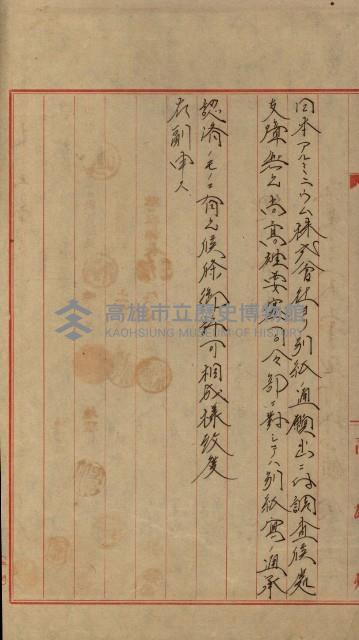 日本アルミニウム株式會社ヨリ別紙ノ通願出ニ付調査候處
支障無之尚高雄要塞司令部ニ對シテハ別紙寫ノ通承
認濟ノモノニ有之候條御許可相成樣致度
右副申ス
高雄市立歷史博物館
KAOHSIUNG MUSEUM OF HISTORY